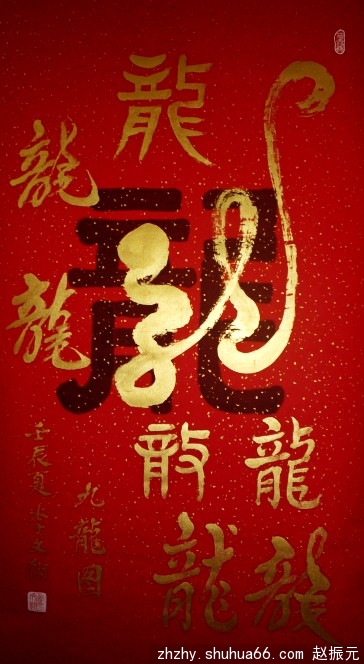 龍
龍
龍
龍
龍
龍
龍
龍
九龍图
壬辰夏
zhzhy.shuhua66.com 赵振元